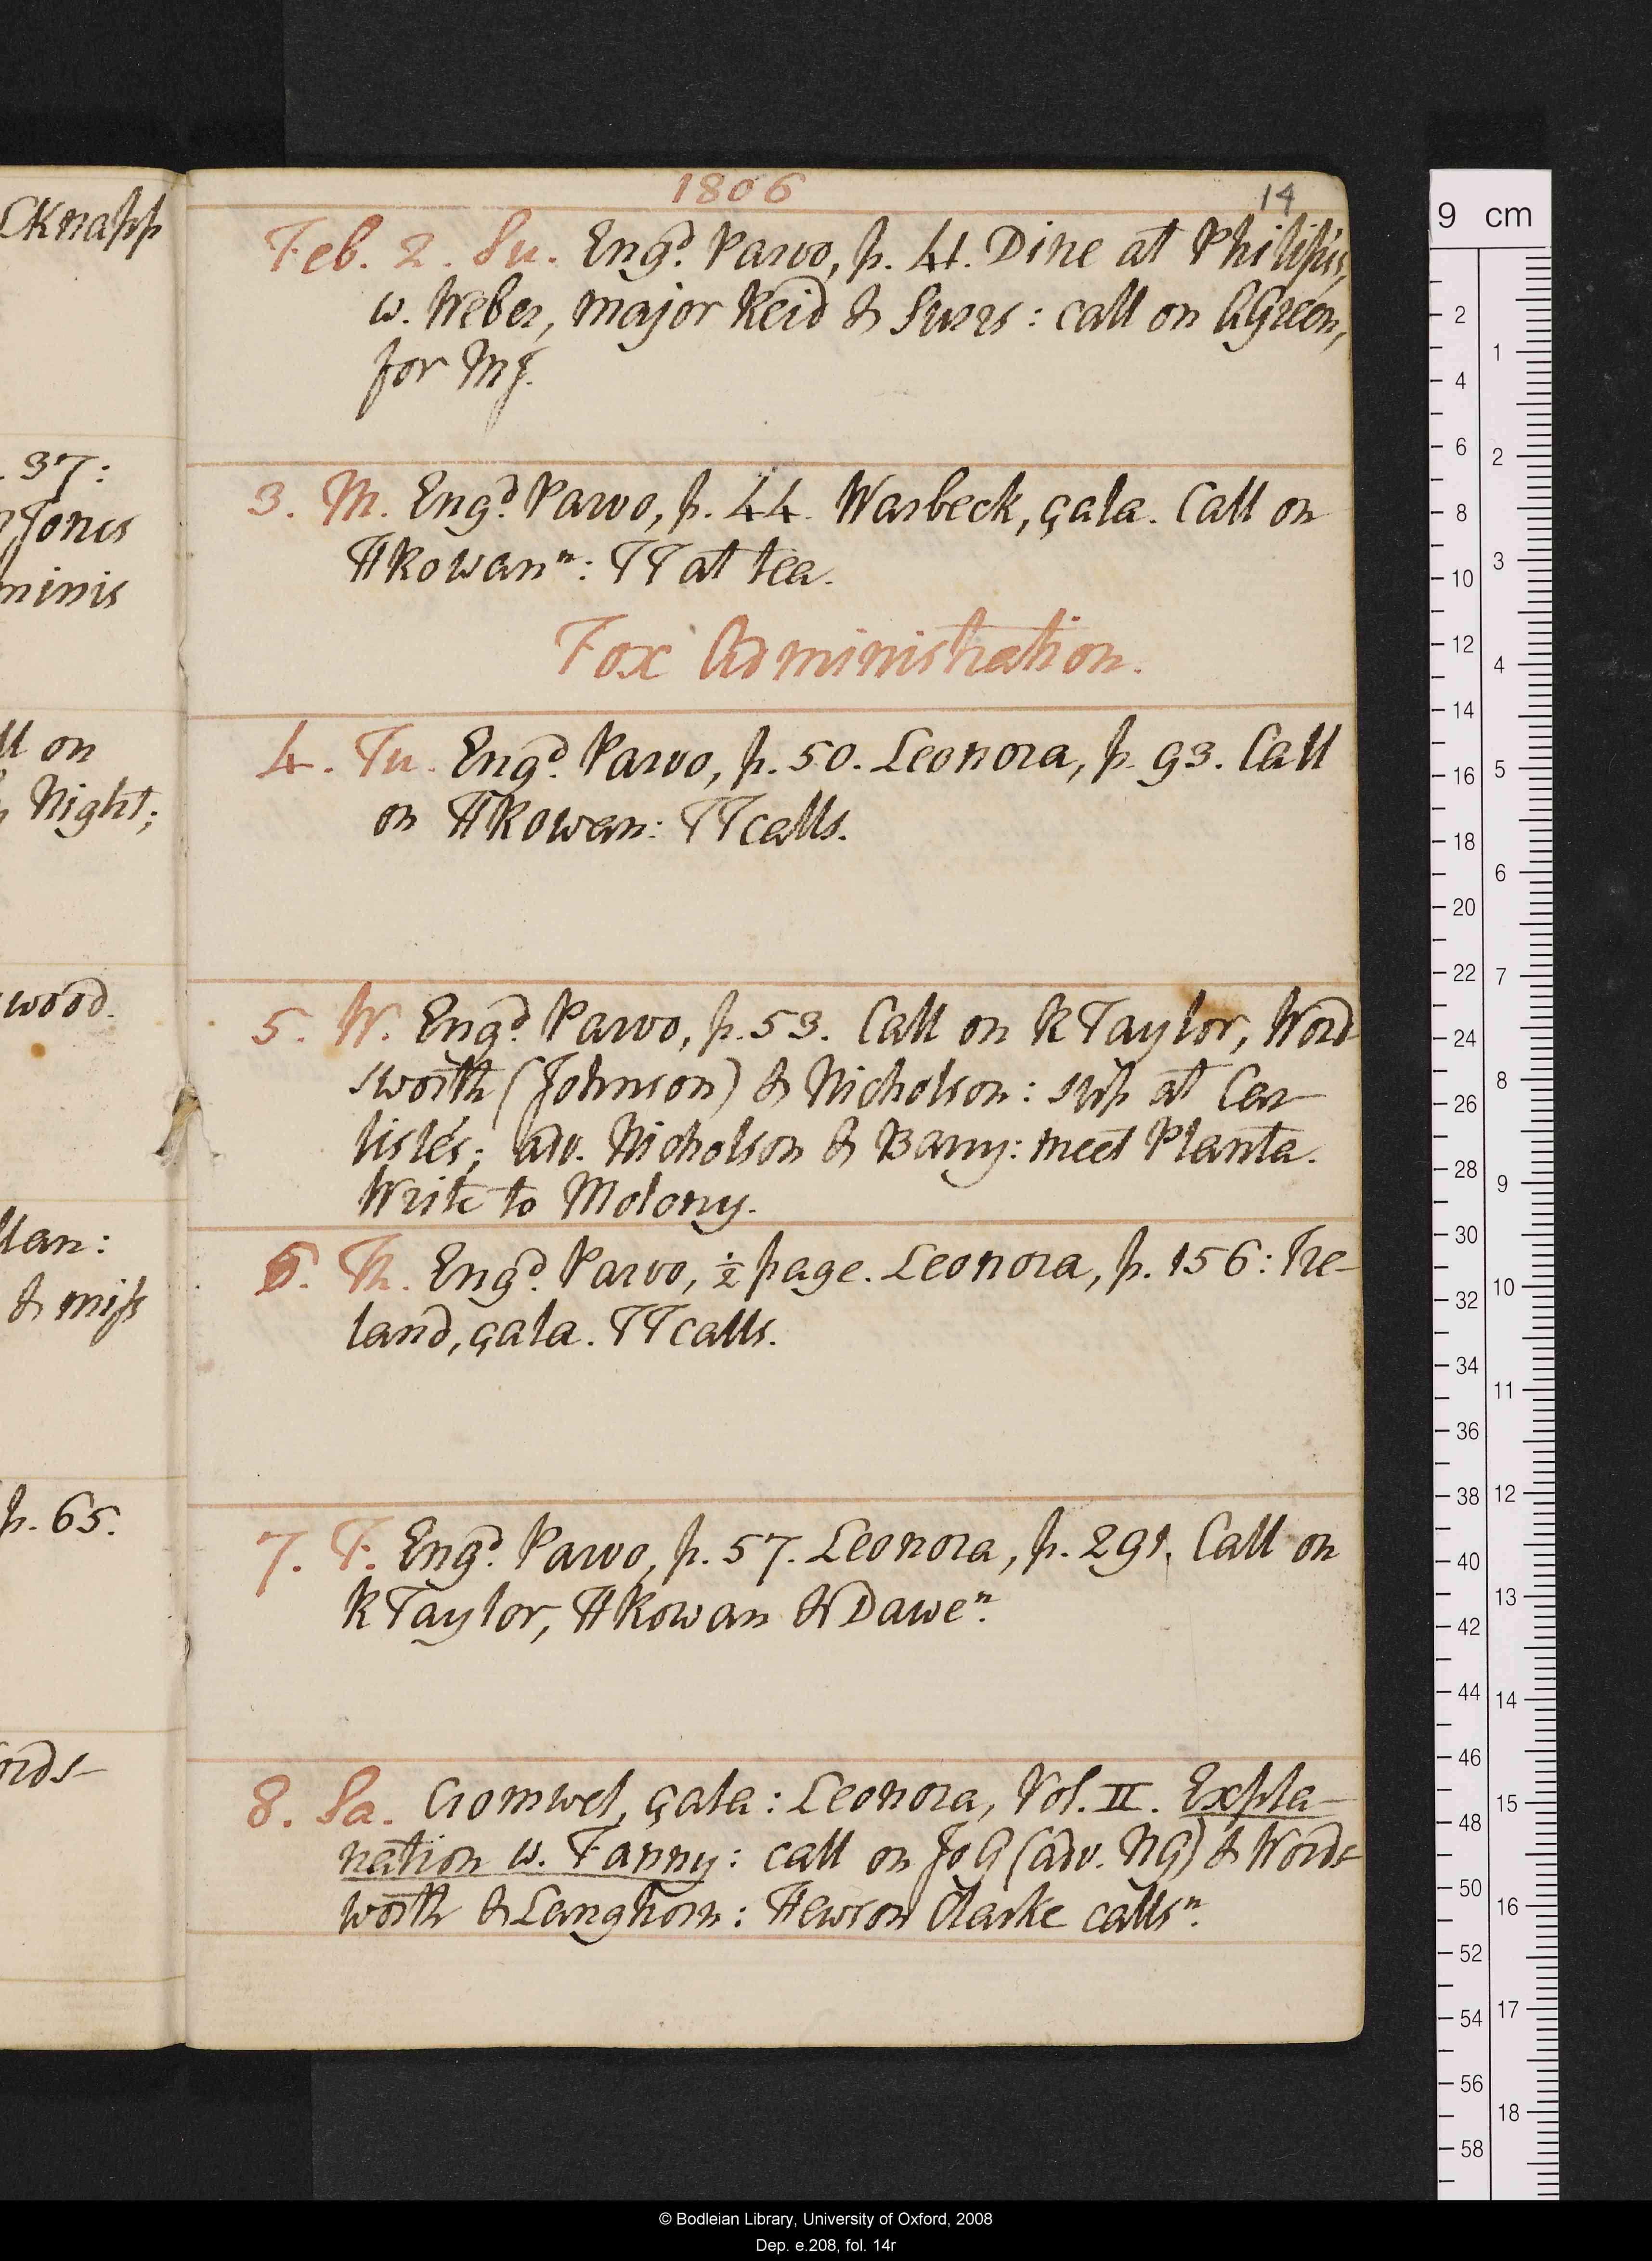 1806
14
Feb. 2. Su. Engd. Parvo, p. 41. Dine at Philips's,
w. Weber, major Reid & Surrs: call on AGreen,
for MJ.
3. M. Engd. Parvo, p. 44. Warbeck, çala. Call on
HRowann: TT at tea.
Fox Administration.
4. Tu. Engd. Parvo, p. 50. Leonora, p. 93. Call
on HRowan: TT calls.
5. W. Engd. Parvo, p. 53. Call on RTaylor, Word
sworth (Johnson) & Nicholson: sup at Car-
lisle's; adv. Nicholson & Barry: meet Planta.
Write to Molony.
6. Th. Engd. Parvo, ½ page. Leonora, p. 156: Ire-
land, çala. TT calls.
7. F. Engd. Parvo, p. 57. Leonora, p. 291. Call on
RTaylor, HRowan & Dawen.
8. Sa. Cromwel, çala: Leonora, Vol. II. Expla-
nation w. Fanny: call on JoG (adv. NG) & Words-
worth & Langhorn: Hewson Clarke callsn.
CKnapp
37:
Jones
minis
ll on
Night;
wood.
llan:
& miss
p. 65.
ords-
9 cm
2
4
6
8
10
12
14
16
18
20
22
24
26
28
30
32
34
36
38
40
42
44
46
48
50
52
54
56
58
1
2
3
4
5
6
7
8
9
10
11
12
13
14
15
16
17
18
© Bodleian Library, University of Oxford, 2008
Dep. e.208, fol. 14r